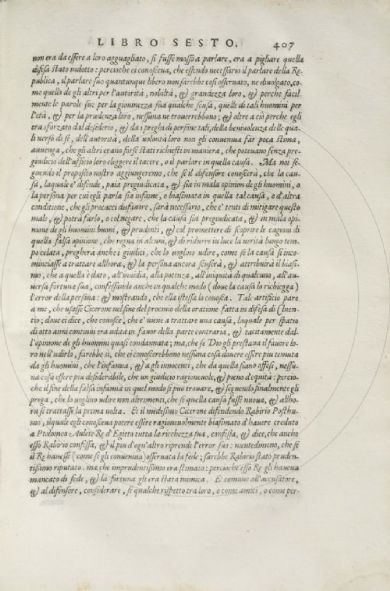 LIBRO SESTO. 407
non era da essere a loro agguagliato, si fusse mosso a parlare, era a pigliare quella
difesa stato indotto: percioche ei conosceua, che essendo necessario il parlare della Re-
publica, il parlare suo quantunque libero non sarebbe così osseruato, ne diuolgato, co-
me quello de gli altri per l'autorità, nobiltà, & grandezza loro, & perche facil-
mente le parole sue per la giouinezza sua qualche scusa, quelle di tali huomini per
l'età, & per la prudenza loro, nessuna ne trouerrebbono; & oltre a ciò perche egli
era sforzato dal desiderio, & da i preghi di persone tali, della beniuolenza delle qua-
li verso di se, dell'autorità, della volontà loro non gli conueniua far poca stima,
auuenga, che gli altri erano forse stati richiesti in maniera, che poteuano senza pre-
giudicio dell'ufficio loro eleggere il tacere, o il parlare in quella causa. Ma noi se-
guendo il proposito nostro aggiugneremo, che se il difensore conoscerà, che la cau-
sa, laquale e' difende, paia pregiudicata, & sia in mala opinione de gli huomini, o
la persona per cui egli parla sia infame, o biasimata in quella tal causa, o d'altra
conditione, che gli procacci disfauore, sarà necessario, che e' tenti di mitigare questo
male, & potrà farlo, o col negare, che la causa sia pregiudicata, & in mala opi-
nione de gli huomini buoni, & prudenti, & col promettere di scoprire le cagioni di
quella falsa opinione, che regna in alcuni, & di ridurre in luce la verità lungo tem-
po celata, preghera anche i giudici, che lo voglino udire, come se la causa si inco-
minciasse a trattare allhora, & la persona ancora scuserà, & attribuirà il biasi-
mo, che a quella è dato, all'inuidia, alla potenza, all'iniquità di qualcuno, all'au-
uersa fortuna sua, confessando anche in qualche modo (doue la causa lo richiegga)
l'error della persona: & mostrando, che ella istessa lo conosca. Tale artificio pare
a me, che usasse Cicerone nel fine del proemio della oratione fatta in difesa di Cluen-
tio; doue ei dice, che conosce, che e' viene a trattare una causa, laquale per spatio
di otto anni continui era udita in fauor della parte contraria, & tacitamente dal-
l'opinione de gli huomini quasi condannata; ma, che se Dio gli prestaua il fauore lo-
ro nell'udirlo, farebbe sì, che ei conoscerebbono nessuna cosa douere essere più temuta
da gli huomini, che l'infamia, & a gli innocenti, che da quella siano offesi, nessu-
na cosa essere più desiderabile, che un giudicio ragioneuole, & pieno di equità: percio-
che il fine della falsa infamia in quel modo si può trouare, & seguendo finalmente gli
prega, che lo voglino udire non altrimenti, che se quella causa fusse nuoua, & allho-
ra si trattasse la prima volta. Et il medesimo Cicerone difendendo Rabirio Posthu-
mo, ilquale egli conosceua potere essere ragioneuolmente biasimato d'hauere creduto
a Ptolomeo Aulete Re d'Egitto tutta la ricchezza sua, confessa, & dice, che anche
esso Rabirio confessa, & il più d'ogn'altro riprende l'error suo: nientedimeno, che se
il Re hauesse (come se gli conueniua) osseruata la fede; sarebbe Rabirio stato pruden-
tissimo riputato: ma che imprudentissimo era stimato: percioche esso Re gli haueua
mancato di fede, & la fortuna gli era stata nimica. E comune all'accusatore,
& al difensore, considerare, se qualche rispetto tra loro, o come amici, o come per-